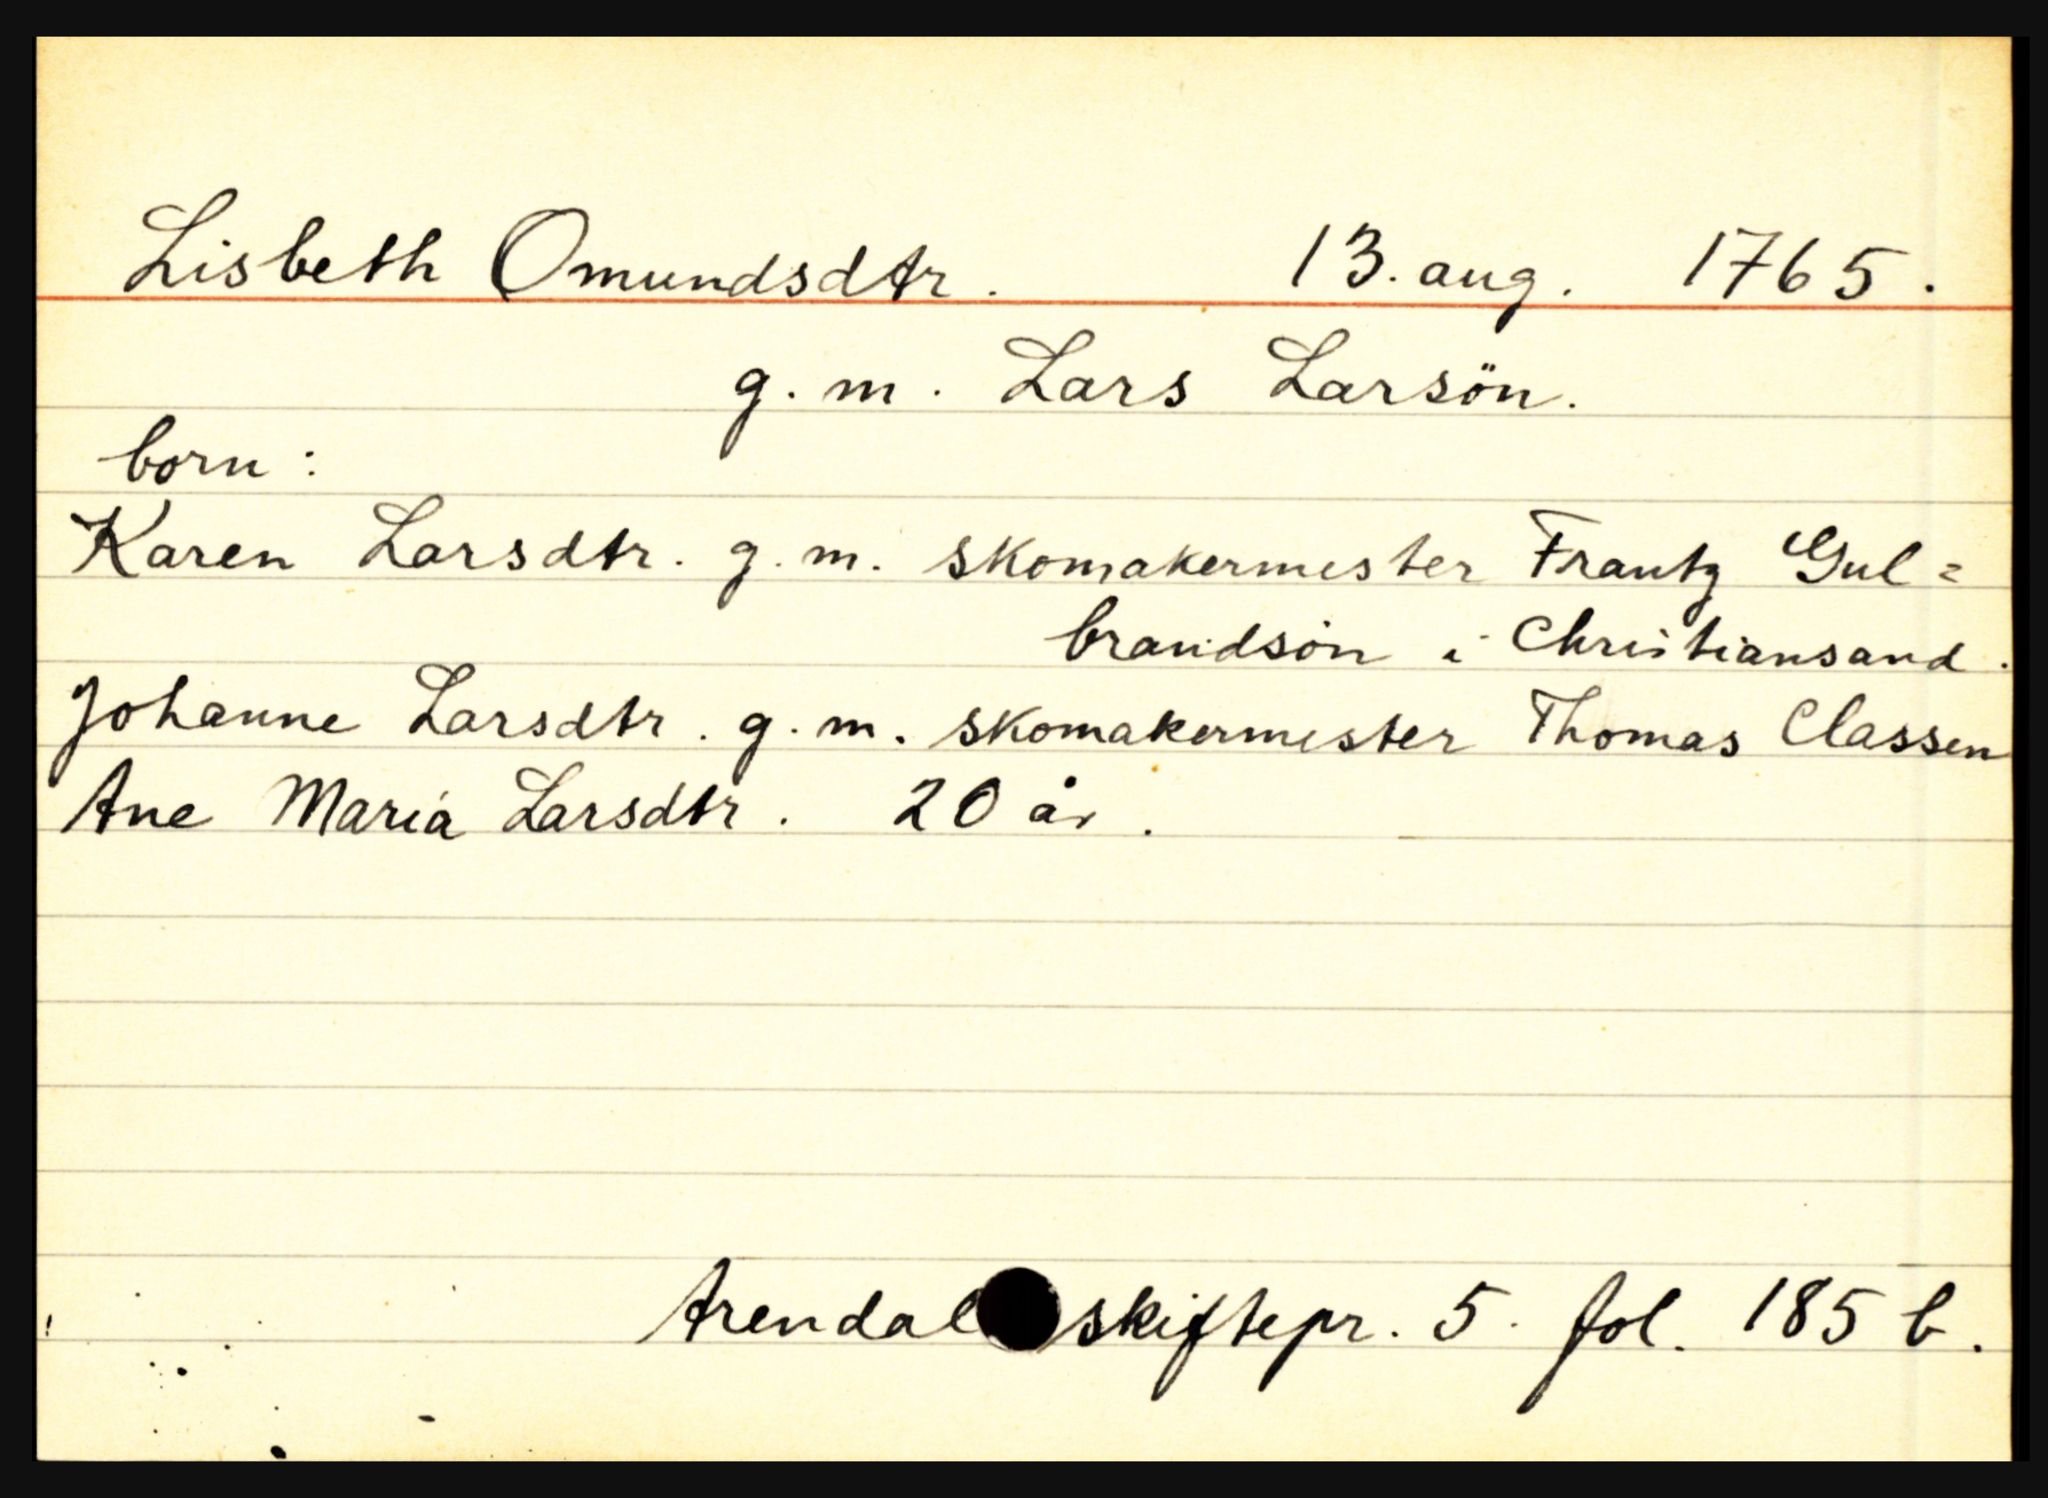 Lisbeth Omundsdtr. 13. aug. 1765.
g. m. Lars Larsön.
born:
Karen Larsdtr. g. m. skomakermester Frantz Gul=
brandsön i Christiansand.
Johanne Larsdtr. g. m. skomakermester Thomas Classen
Ane Maria Larsdtr. 20 år.
Arendal skiftepr. 5. fol. 185 b.